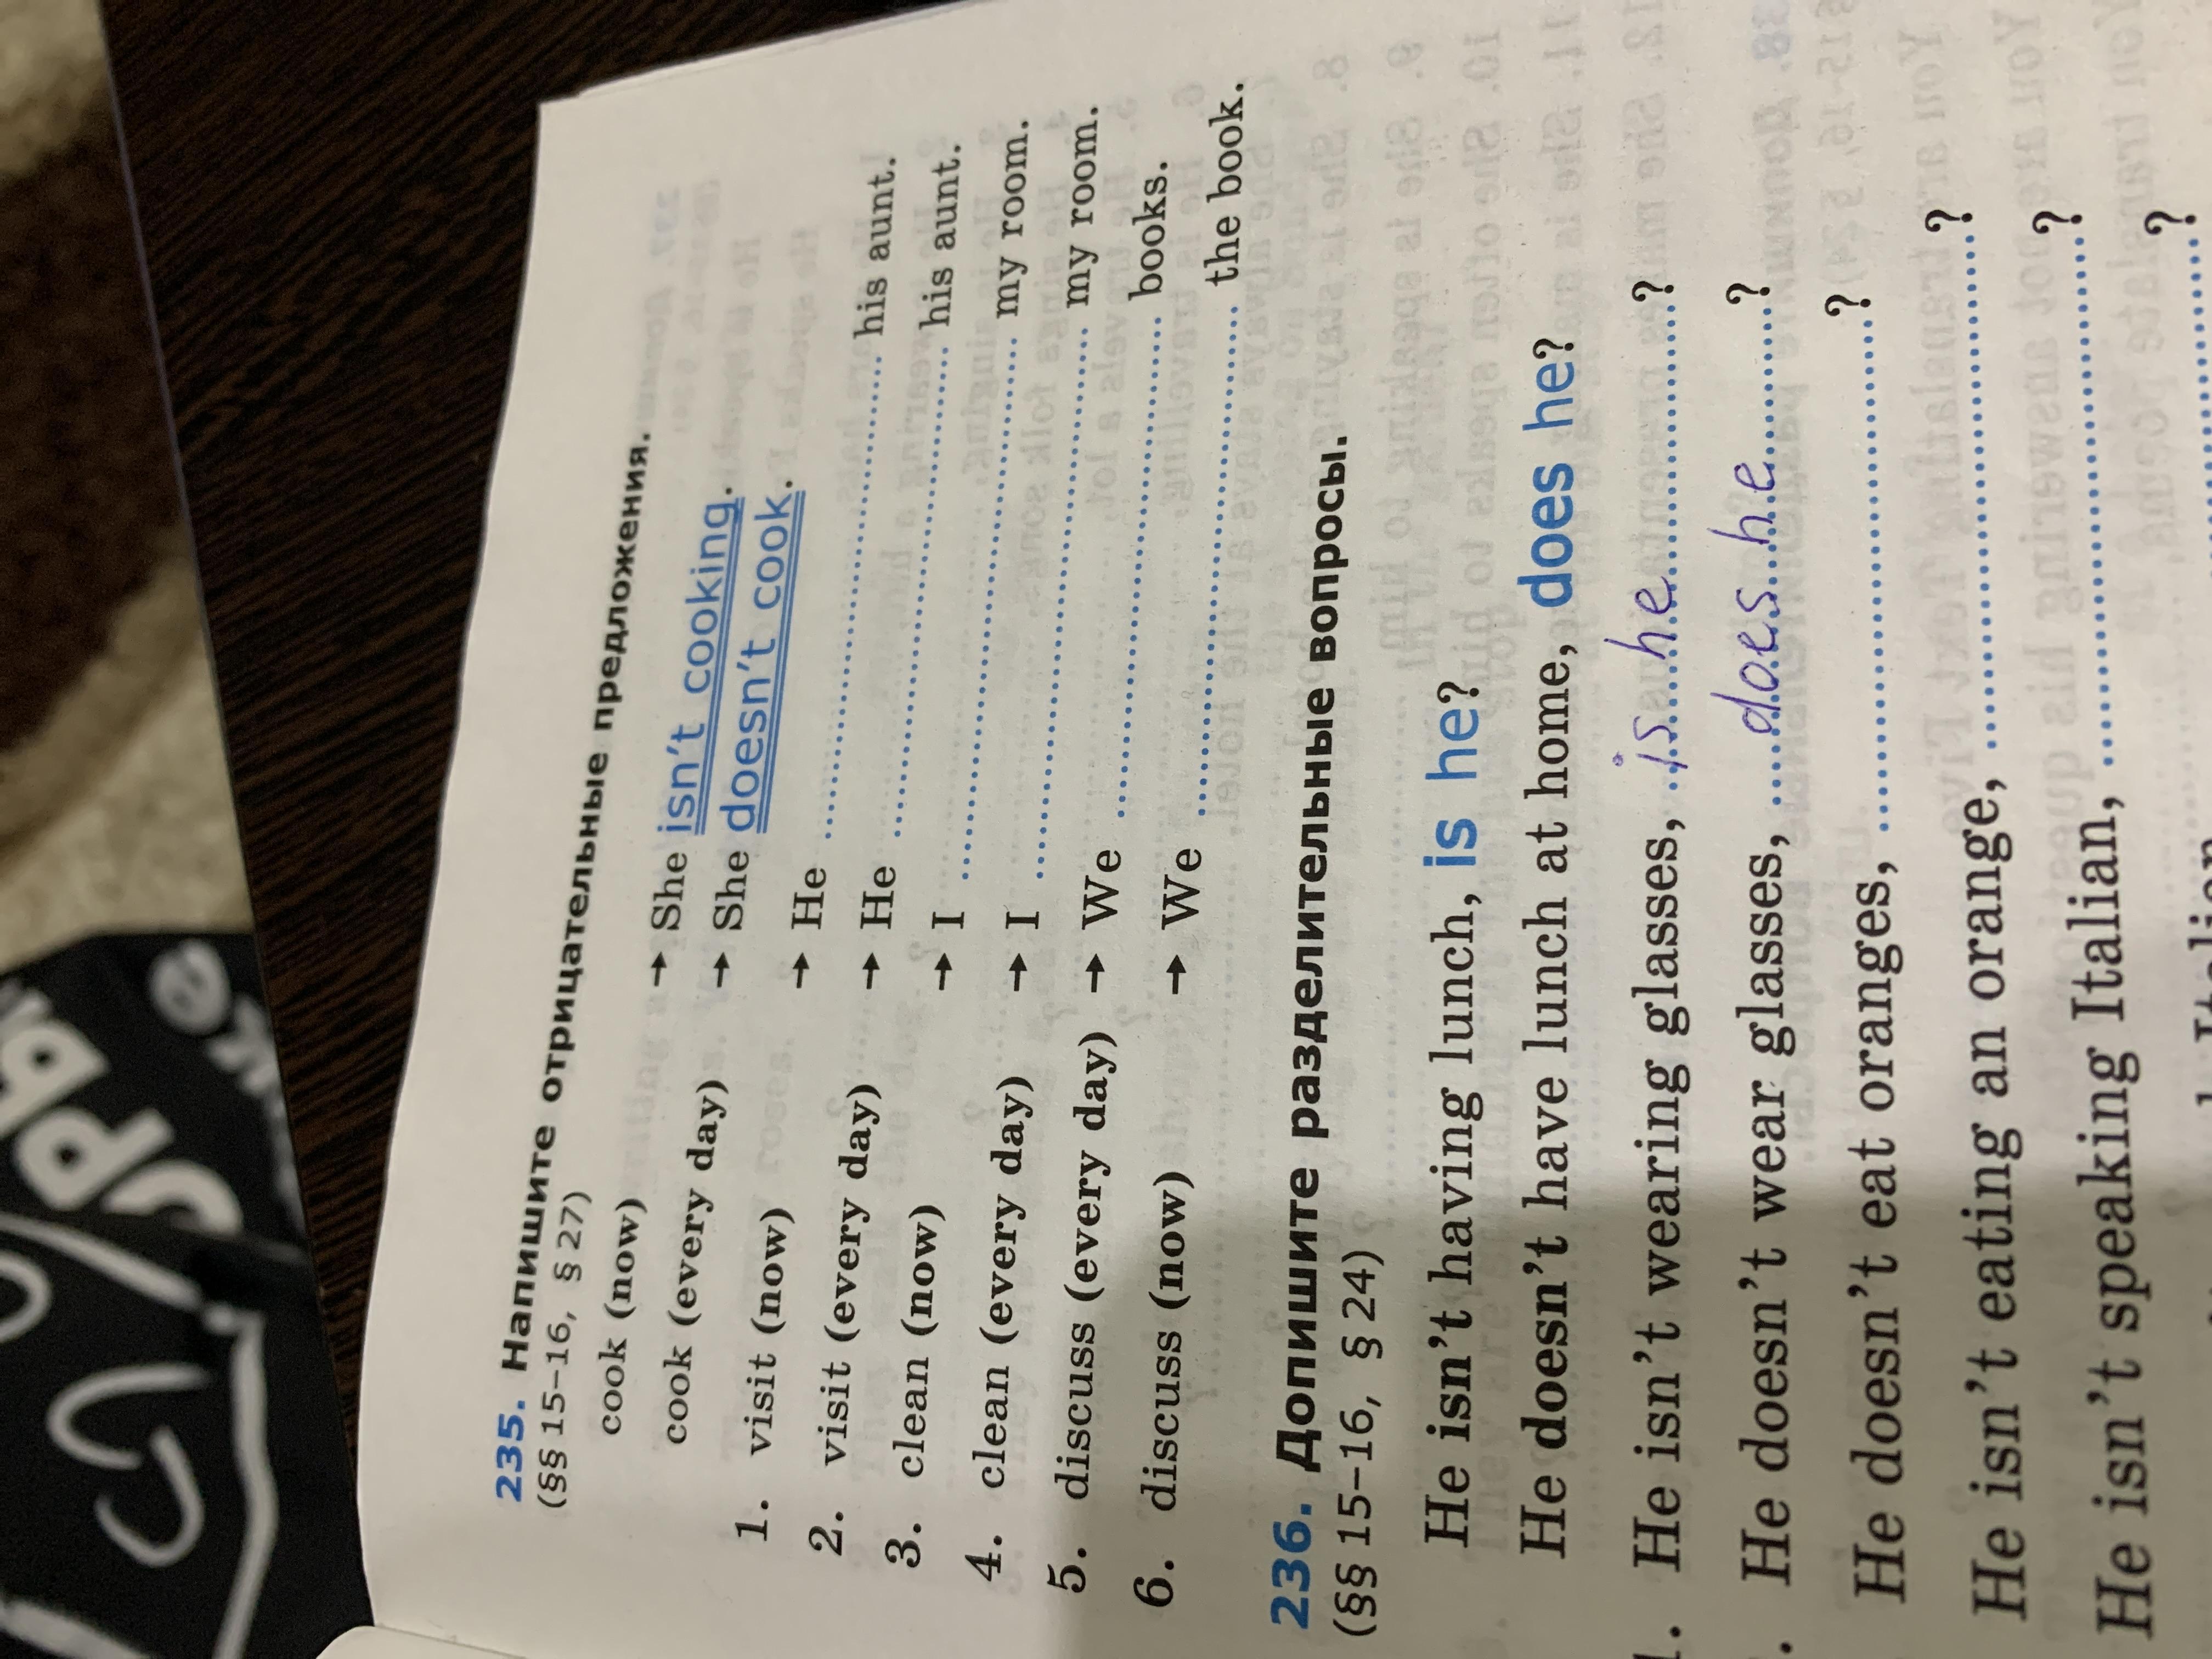 235. Напишите отрицательные предложения.
(§§ 15–16, § 27)
cook (now) → She isn't cooking.
cook (every day) → She doesn't cook.
1. visit (now) → He .................... his aunt.
2. visit (every day) → He .................... his aunt.
3. clean (now) → I .................... my room.
4. clean (every day) → I .................... my room.
5. discuss (every day) → We .................... books.
6. discuss (now) → We .................... the book.
236. Допишите разделительные вопросы.
(§§ 15–16, § 24)
He isn't having lunch, is he?
He doesn't have lunch at home, does he?
1. He isn't wearing glasses, is he?
. He doesn't wear glasses, does he?
He doesn't eat oranges, ....................?
He isn't eating an orange, ....................?
He isn't speaking Italian, ....................?